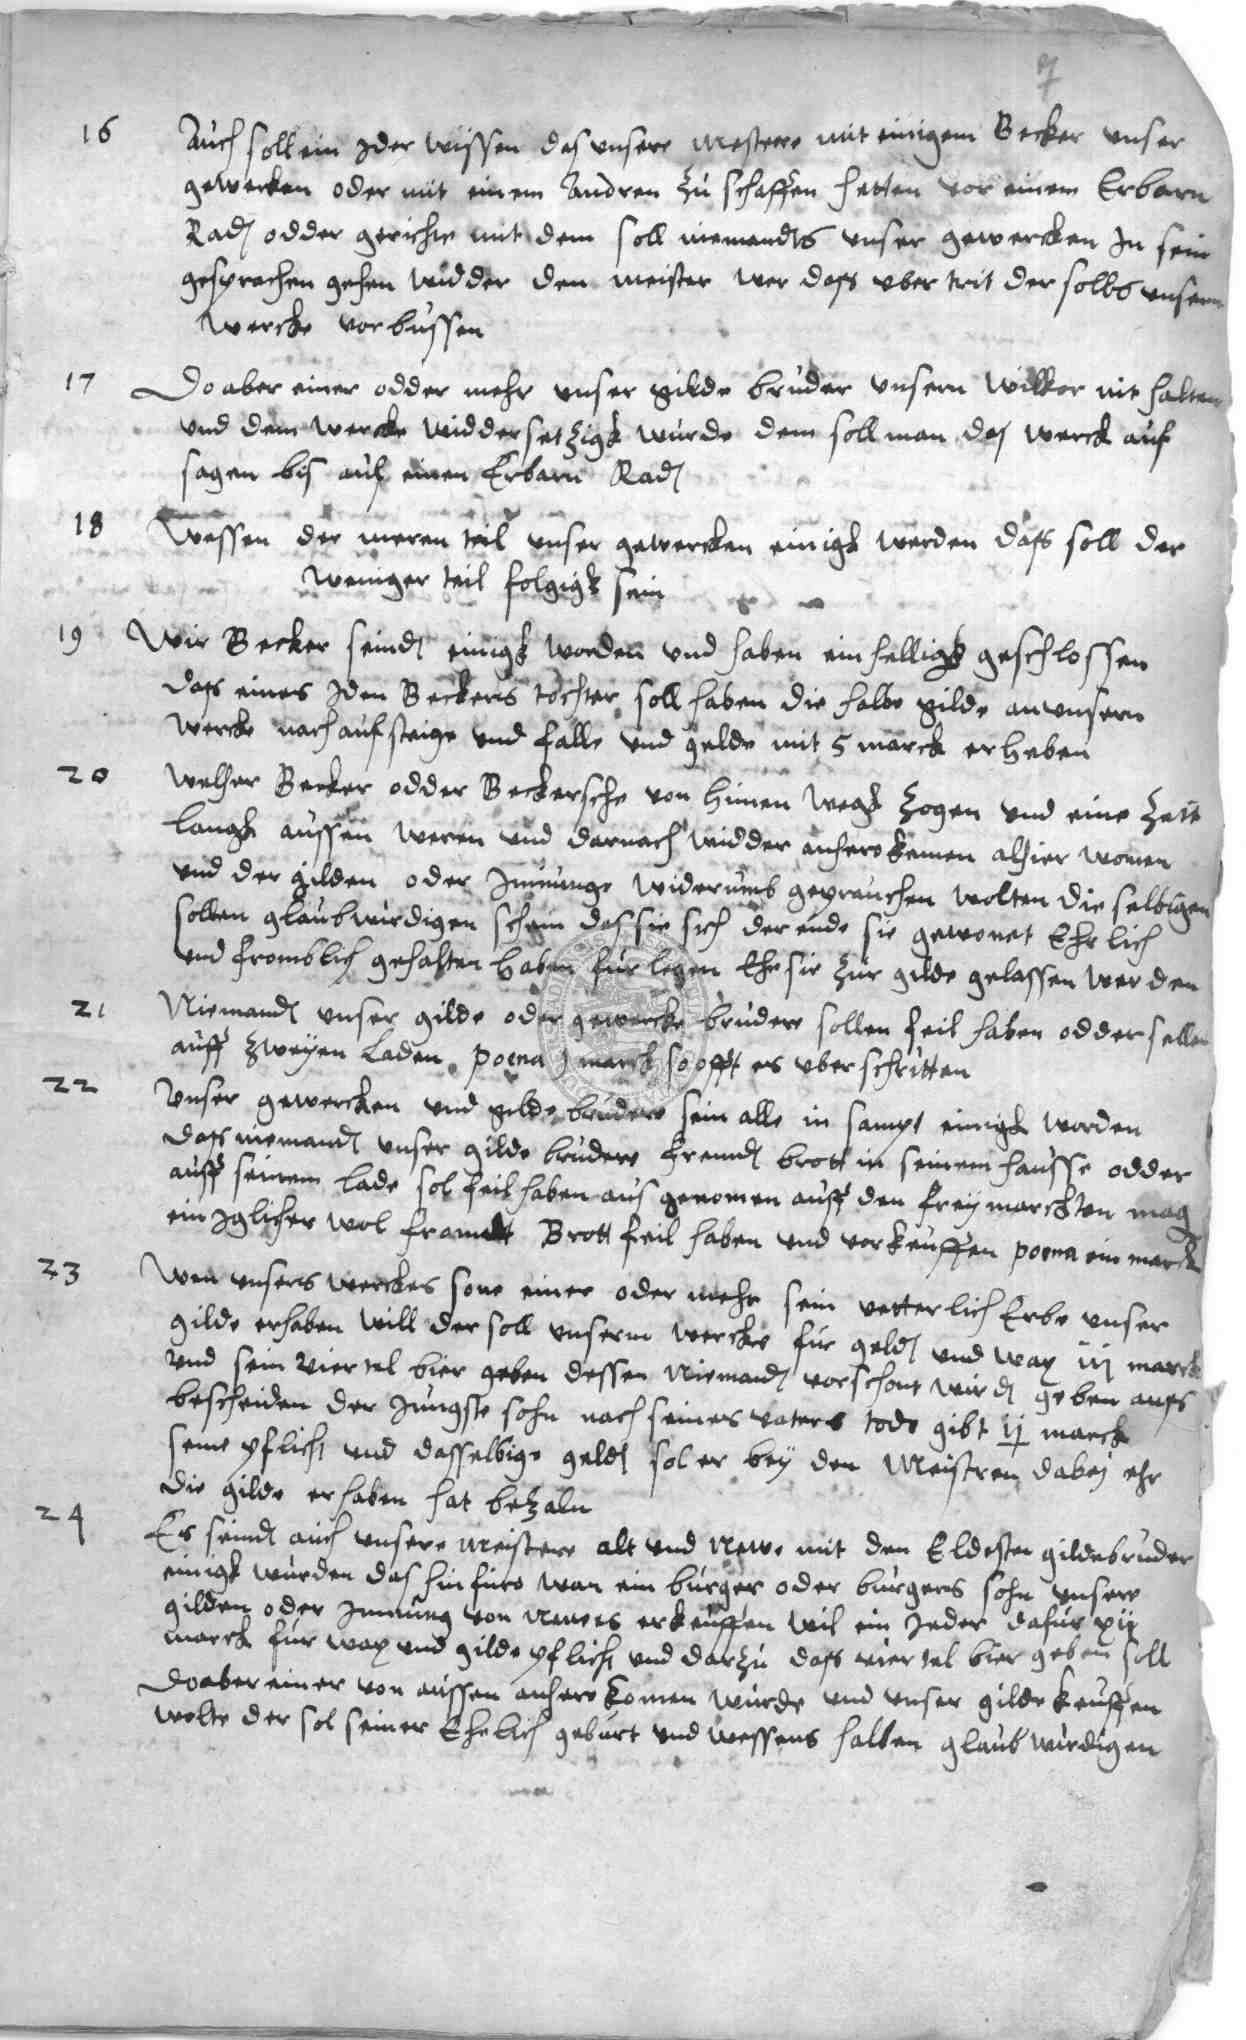 16 Auch soll ein Jder wissen das unsere Mestere mit einigem Becker unser
gewercken oder mit einem Andren zu schaffen hetten vor einem Erbarn
Radt odder gerichte mit dem soll niemandts unser gewercken In sein
gesprechen gehen widder den meister wer dass ubertrit der solls unserm
wercke vorbussen
17 Do aber einer odder mehr unser gilde bruder unsern wilkor nit halten
und dem wercke widdersetzigk wurde dem soll man das werck auf
sagen bis auf einen Erbarn Radt
18 Wessen der meren teil unser gewercken einigk werden dass soll der
weniger teil folgigk sein
19 Wir Becker seindt einigk worden und haben einhelligk geschlossen
dass eines Jden Beckers tochter soll haben die halbe gilde an unserm
wercke nach aufsteige und falle und gelde mit 5 marck erheben
20 Welcher Becker odder Beckersche von hinnen wegk zogen und eine zeit
langk aussen weren und darnach widder anhero kemen alhier wonen
und der gilden oder Jnnunge widerumb geprauchen wolten die selbigen
sollen glaubwirdigen schein das sie sich der ende sie gewonet Ehrlich
und fromblich gehalten haben fur legen Ehe sie zur gilde gelassen werden
21 Niemandt unser gilde oder gewercke brudere sollen feil haben odder sellen
auff zweyen Laden poena j marck so offt es uberschritten
22 Unser gewercken und gilde brudere sein alle in sampt einigk worden
dass niemandt unser gilde brudere fremdt brott in seinem hausse odder
auff seinem Lade sol feil haben aus genomen auff den freymarckten mag
ein Jglicher wol framdt Brott feil haben und vorkeuffen poena ein marck
23 Wen unsers werckes sone einer oder mehr sein vetterlich Erbe unser
gilde erhaben will der soll unserm wercke fur geldt und wax iij marck
und sein viertel bier geben dessen Niemandt vorschont wirdt geben aufs
bescheiden der Jungste sohn nach seines vaters tode gibt ij marck
seine pflicht und dasselbige geldt sol er bey den Meistren dabej ehr
die gilde erhaben hat bezaln
24 Es seindt auch unsere Meistere alt und Newe mit den Eldesten gildebruder
einigk wurden das hinfuro wan ein burger oder burgers sohn unsere
gilden oder Jnnung von Newes erkeuffen wil ein Jeder dafur xij
marck fur wax und gilde pflicht und darzu dass viertel bier geben soll
Do aber einer von aussen anhero komen wurde und unser gilde keuffen
wolte der sol seiner Ehelich geburt und wessens halben glaubwirdigen